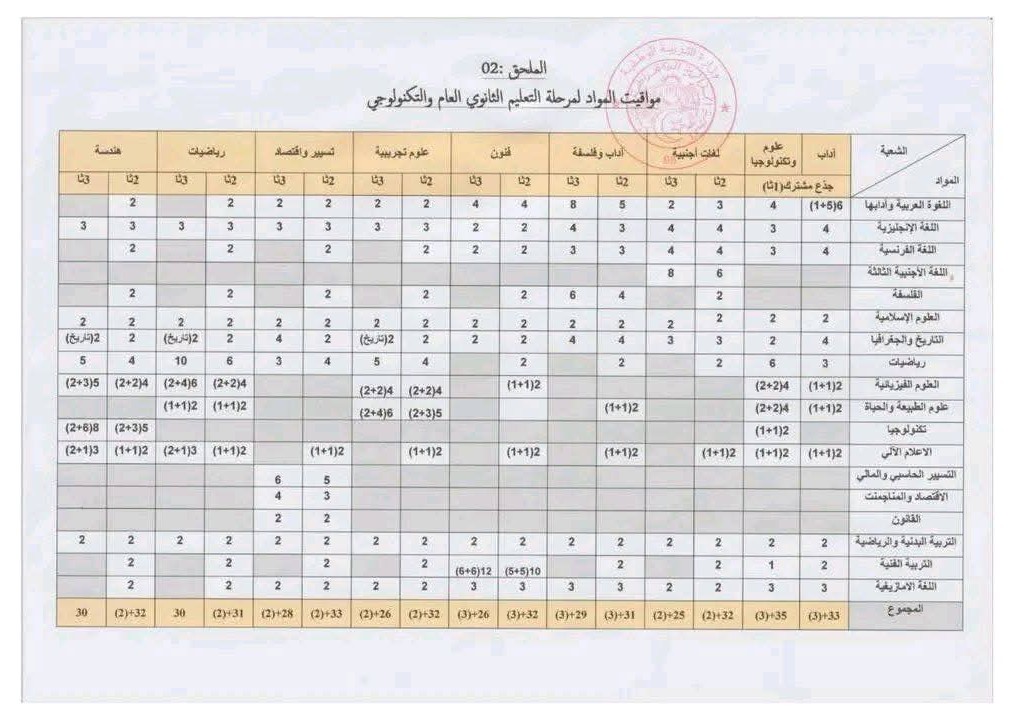 الملحق :02
مواقيت المواد لمرحلة التعليم الثانوي العام والتكنولوجي
الشعبة آداب علوم وتكنولوجيا لغات أجنبية آداب وفلسفة فنون علوم تجريبية تسيير واقتصاد رياضيات هندسة
المواد جذع مشترك(1ثا) 2ثا 3ثا 2ثا 3ثا 2ثا 3ثا 2ثا 3ثا 2ثا 3ثا 2ثا 3ثا 2ثا 3ثا
اللغوة العربية وآدابها (1+5)6 4 3 2 5 8 4 4 2 2 2 2 2 2
اللغة الإنجليزية 4 3 4 4 3 4 2 2 3 3 3 3 3 3 3 3
اللغة الفرنسية 4 3 4 4 3 3 2 2 2 2 2 2
اللغة الأجنبية الثالثة 6 8
الفلسفة 2 4 6 2 2 2 2 2
العلوم الإسلامية 2 2 2 2 2 2 2 2 2 2 2 2 2 2 2 2
التاريخ والجغرافيا 4 2 3 3 4 4 2 2 2 2(تاريخ) 2 4 2 2(تاريخ) 2 2(تاريخ)
رياضيات 3 6 2 2 2 4 5 4 3 6 10 4 5
العلوم الفيزيائية (1+1)2 (2+2)4 (1+1)2 (2+2)4 (2+2)4 (2+2)4 (2+4)6 (2+2)4 (2+3)5
علوم الطبيعة والحياة (1+1)2 (2+2)4 (1+1)2 (2+3)5 (2+4)6 (1+1)2 (1+1)2
تكنولوجيا (1+1)2 (2+3)5 (2+6)8
الاعلام الآلي (1+1)2 (1+1)2 (1+1)2 (1+1)2 (1+1)2 (1+1)2 (1+1)2 (1+1)2 (2+1)3 (1+1)2 (2+1)3
التسيير الحاسبي والمالي 5 6
الاقتصاد والمناجمنت 3 4
القانون 2 2
التربية البدنية والرياضية 2 2 2 2 2 2 2 2 2 2 2 2 2 2 2 2
التربية الفنية 2 1 2 2 (5+5)10 (6+6)12 2 2 2 2
اللغة الامازيغية 3 3 2 2 3 3 3 3 2 2 2 2 2 2
المجموع (3)+33 (3)+35 (2)+32 (2)+25 (3)+31 (3)+29 (3)+32 (3)+26 (2)+32 (2)+26 (2)+33 (2)+28 (2)+31 30 (2)+32 30